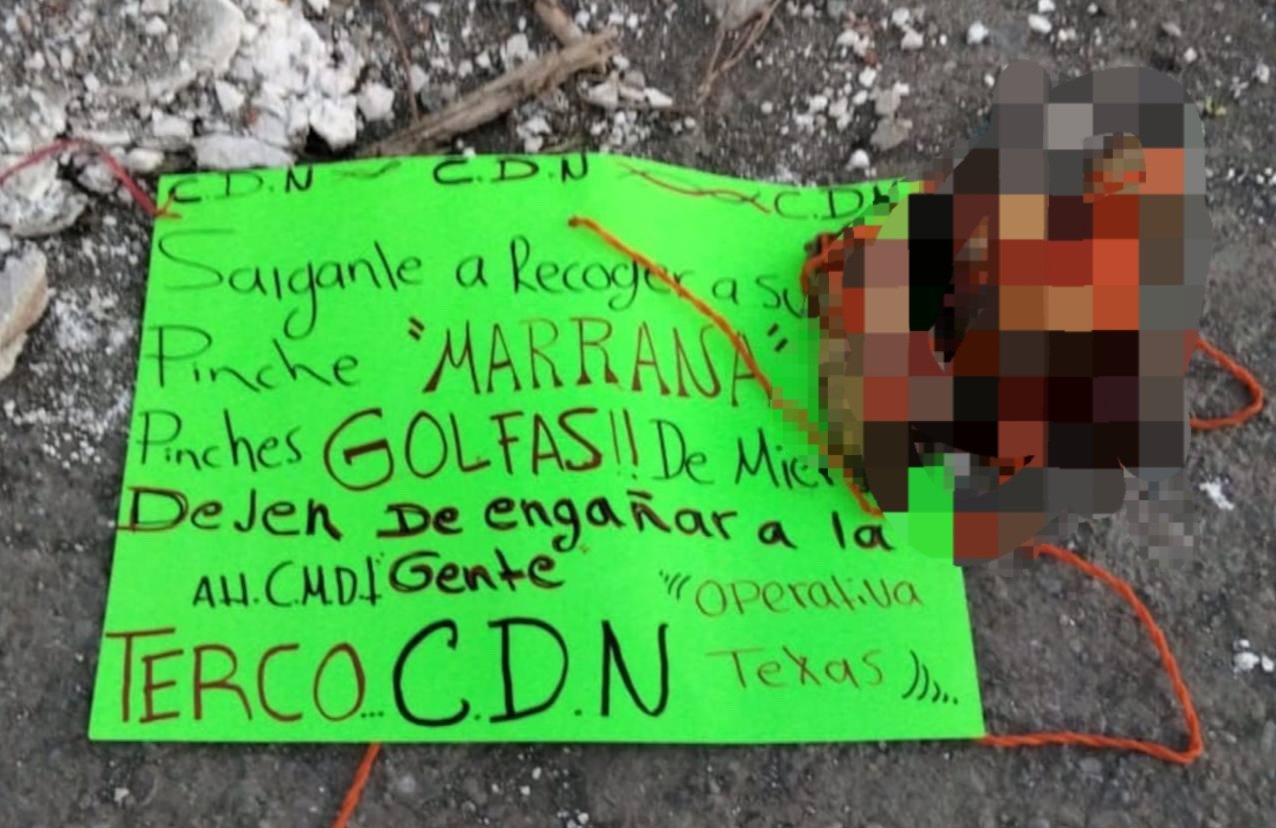 C.D.N C.D.N C.D.N
Salganle a Recoger a su
Pinche "MARRANA"
Pinches GOLFAS!! De Mier
DeJen De engañar a la
AH.C.M.D.I "Gente" "Operativa
TERCO... C.D.N Texas